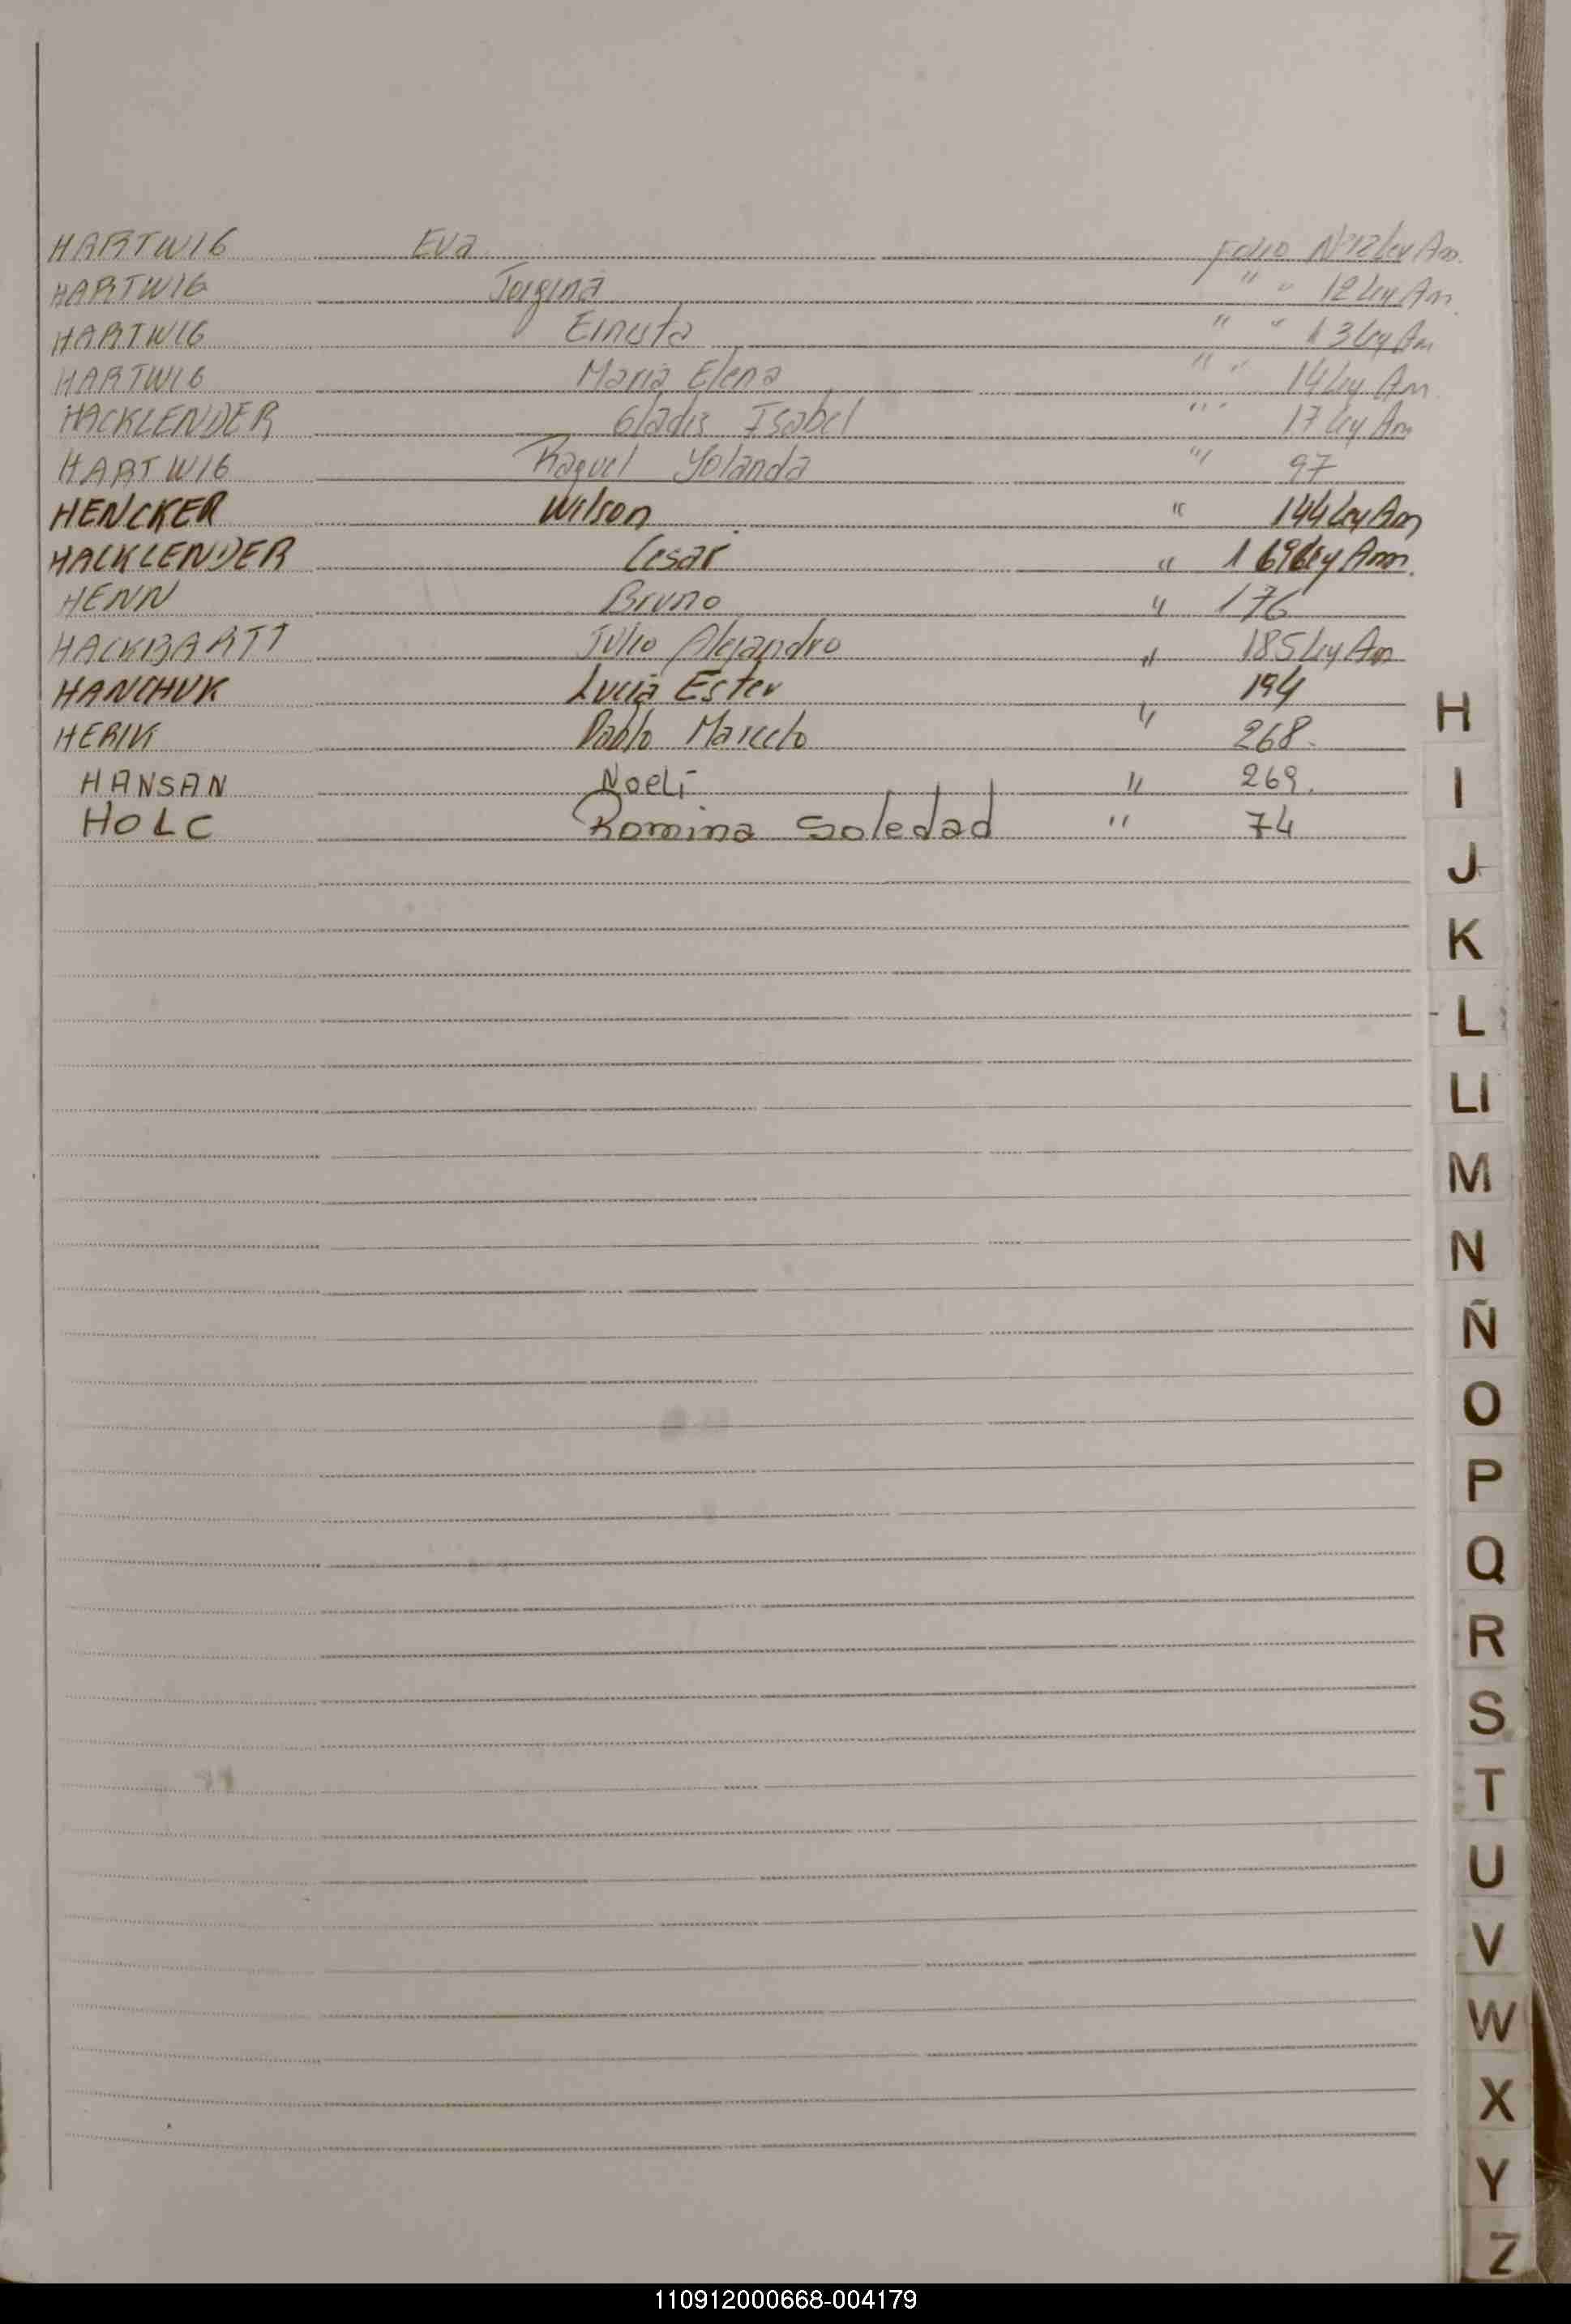 HARTWIG Eva Folio Nº 12 Ley Am.
HARTWIG Jorgina " " 12 Ley Am
HARTWIG Ernesta " " 13 Ley Am
HARTWIG Maria Elena " " 14 Ley Am
HACKLENDER Gladis Isabel " " 17 Ley Am
HARTWIG Raquel Yolanda " 97
HENCKER Wilson " 144 Ley Am
HACKLENDER Cesar " 169 Ley Am.
HENN Bruno " 176
HACKBARTT Julio Alejandro " 185 Ley Am
HANCHUK Lucia Ester 194
HERIK Pablo Marcelo " 268.
HANSAN Noeli " 269.
HOLC Romina Soledad " 74
H
I
J
K
L
Ll
M
N
Ñ
O
P
Q
R
S
T
U
V
W
X
Y
Z
110912000668-004179